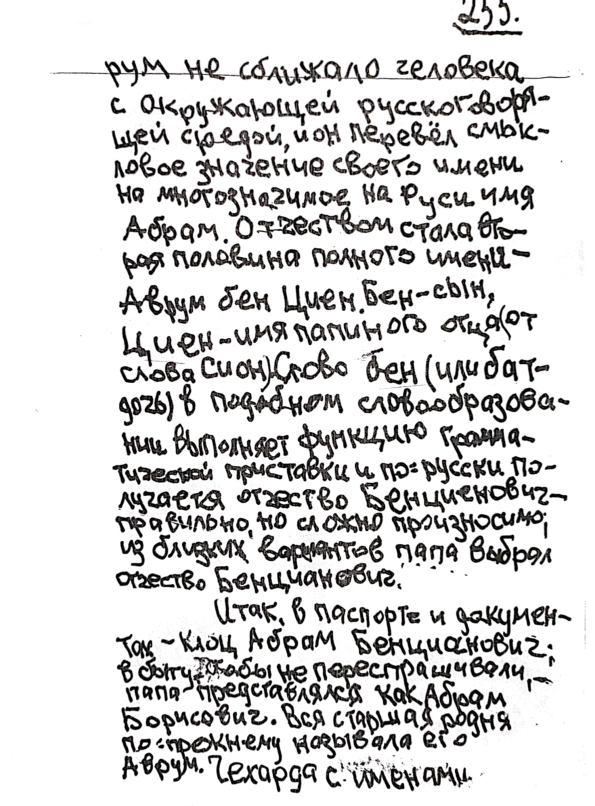 255.
рум не сближало человека
с окружающей русскоговоря-
щей средой, и он перевёл смыс-
ловое значение своего имени
на многозначимое на Руси имя
Абрам. Отчеством стала вто-
рая половина полного имени-
Аврум бен Циен. Бен-сын,
Циен-имя папиного отца(от
слова Сион)Слово бен(или бат-
дочь) в подобном словообразова-
нии выполняет функцию грамма-
тической приставки и по-русски по-
лучается отчество Бенциенович-
правильно, но сложно произносимо;
из близких вариантов папа выбрал
отчество Бенцианович.
Итак, в паспорте и докумен-
тах - Клоц Абрам Бенцианович;
в быту, чтобы не переспрашивали,-
папа представлялся как Абрам
Борисович. Вся старшая родня
по-прежнему называла его
Аврум. Чехарда с именами